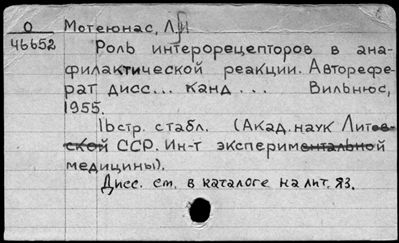 О
46652
Мотеюнас, Л.И
Роль интерорецепторов в ана-
филактической реакции. Авторефе-
рат дисс... канд... Вильнюс,
1955.
16стр. стабл. (Акад. наук Литов-
ской ССР. Ин-т экспериментальной
медицины).
Дисс. см. в каталоге на лит. яз.